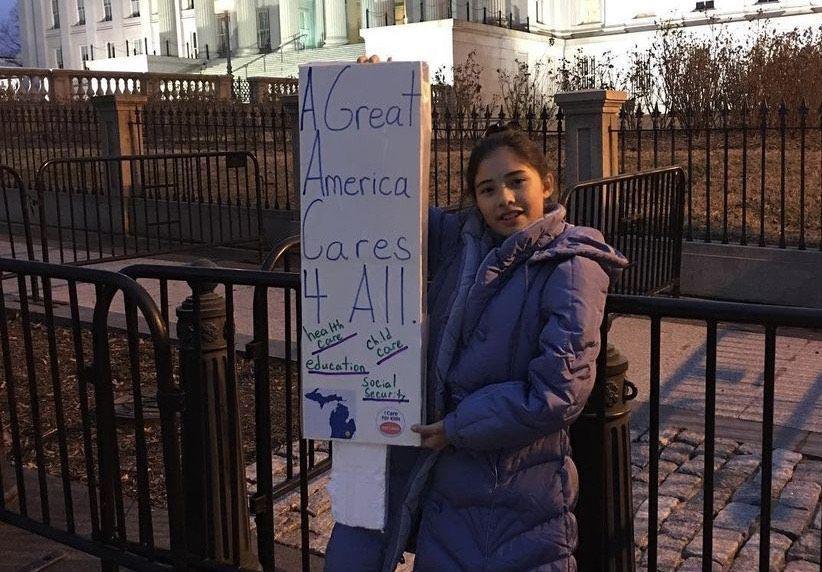 A Great
America
Cares
4 All.
health
care
child
care
education
social
security
I Care
for Kids